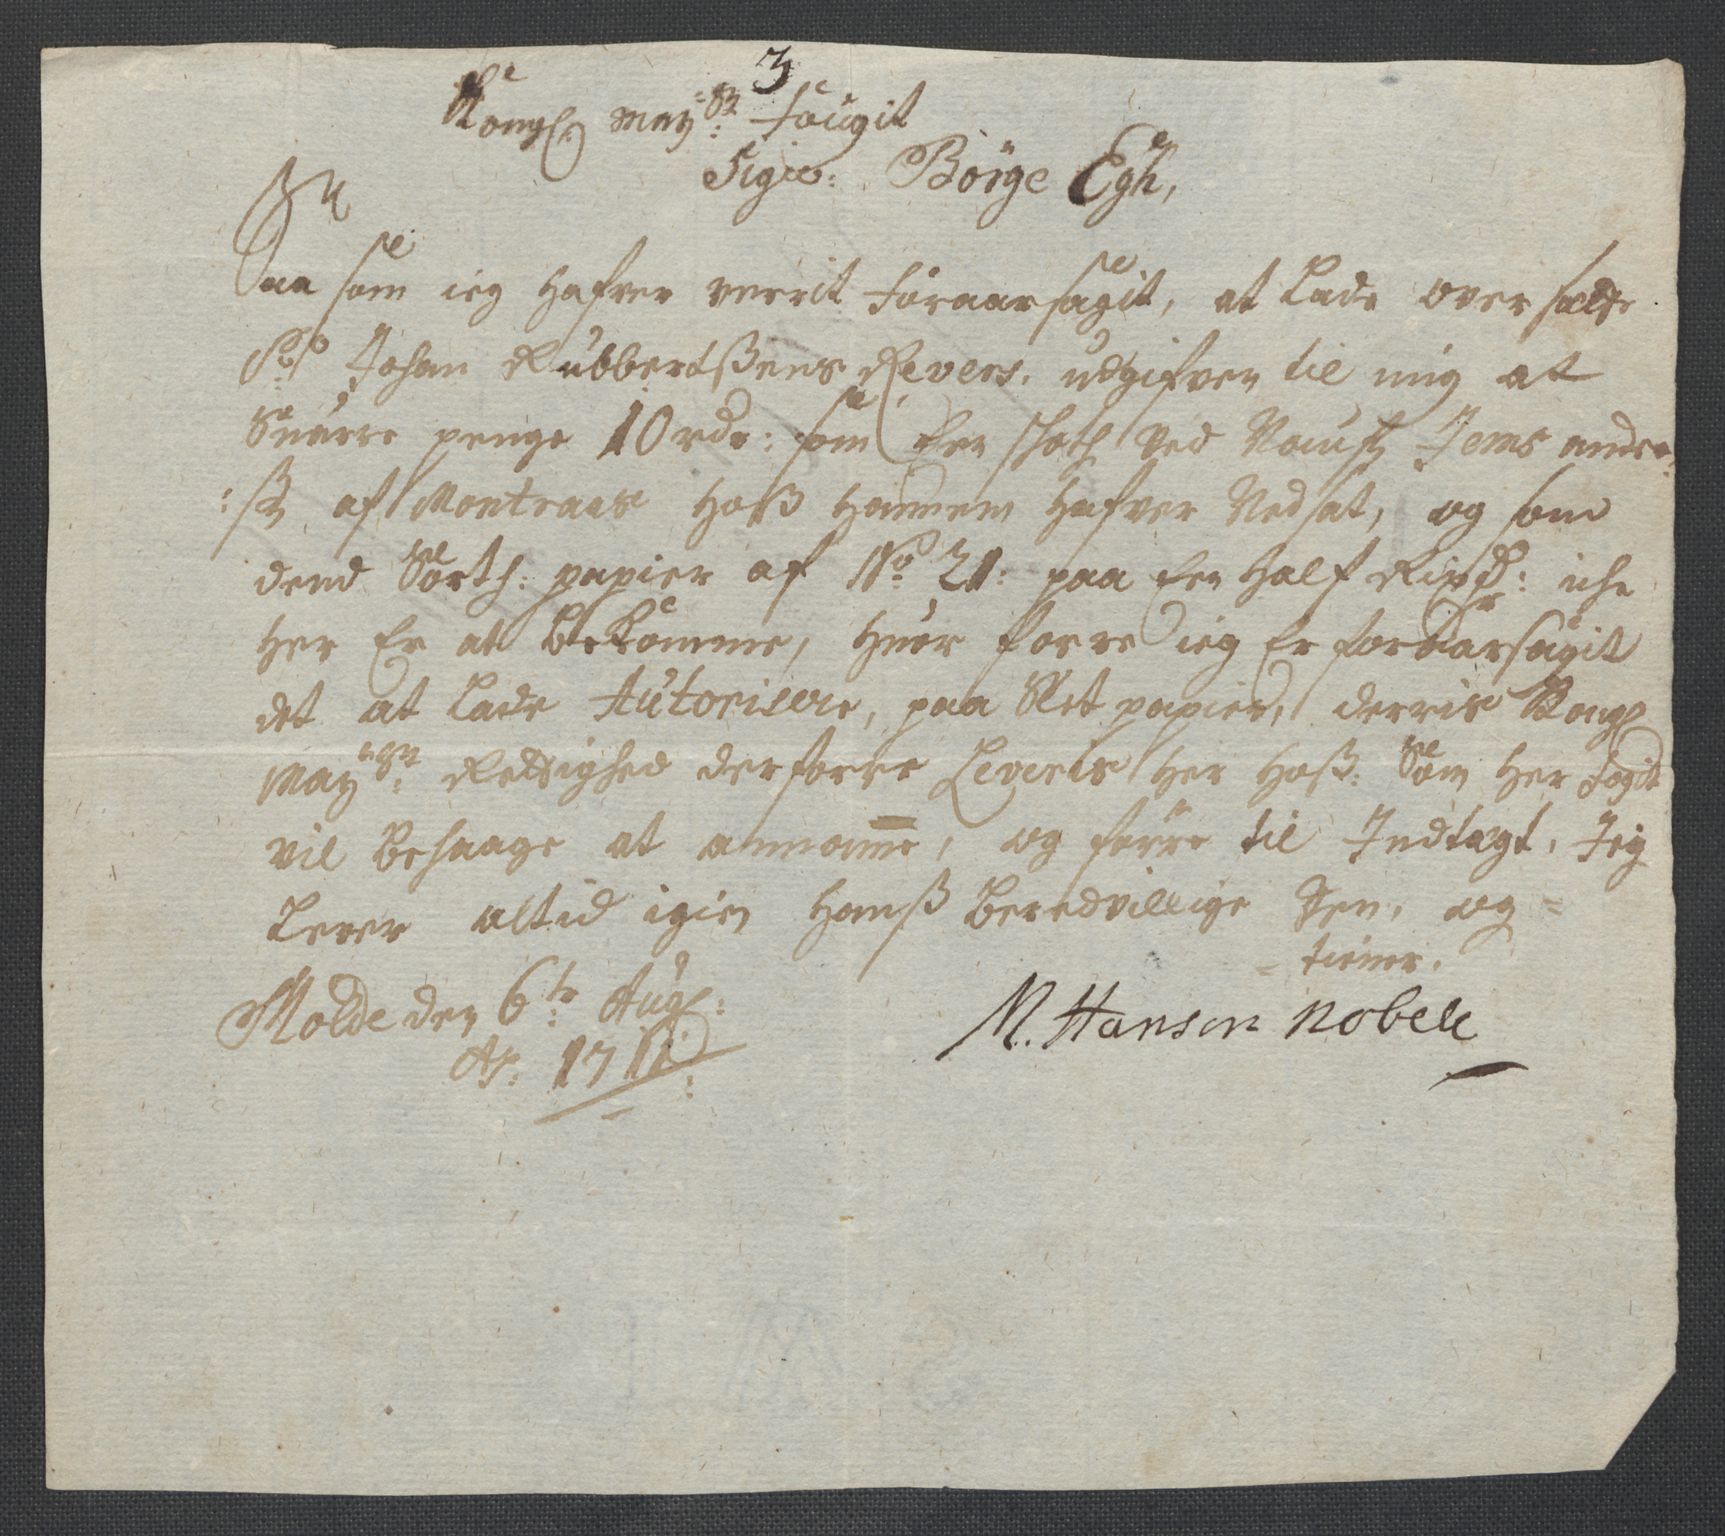 3
Kongl: May:ts fougit
Sigr: Börge Egh,
Saa som ieg hafver verrit foraarsagit, at lade over sælde
Sr Johan Rubbertßens Revers, udgifven til mig at
Snurre penge 10 rdr: som Een schoth ved Naufn Jens andre:
:ß af Montraes hoß hannem hafver Nedsat, og som
dend Sorth: papier af No 21: paa Een half Rixdr: iche
her Er at bekomme, huor forre ieg Er foraarsagit
det at lade Autorisere, paa Slet papier, derris Kongl
May:ts Rettighed derforre Leveris her hoß: Som her fogit
vil behaage at annamme, og förre til Indtægt, Jeg
lever altid igien hanß beredvillige Ven, og =
= tiener.
Molde den 6te Aug:
Ao: 1711:
M. Hansen Nobell